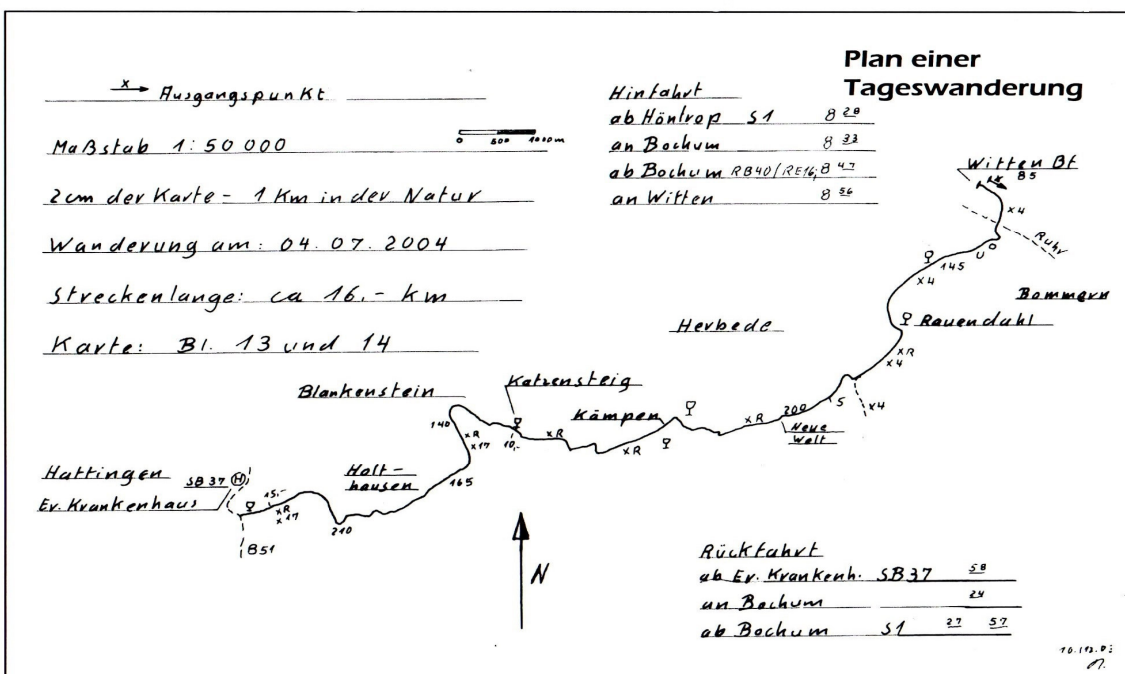 Plan einer
Tageswanderung
x Ausgangspunkt
Maßstab 1:50 000
0 500 1000m
2cm der Karte - 1 Km in der Natur
Wanderung am: 04.07.2004
Streckenlänge: ca 16,- km
Karte: Bl. 13 und 14
Hinfahrt
ab Höntrop S1 8 28
an Bochum 8 33
ab Bochum RB40/RE16; 8 47
an Witten 8 56
Witten Bf
85
x4
Ruhr
145
x4
Bommern
Rauendahl
xR
x4
Herbede
x4
5
200
Neue
Welt
xR
Kämpen
xR
Katzensteig
10,-
xR
Blankenstein
140
xR
x17
165
Holt-
hausen
210
Hattingen SB37 H
Ev. Krankenhaus
15,-
xR
x17
B51
N
Rückfahrt
ab Ev. Krankenh. SB37 58
an Bochum 24
ab Bochum S1 27 57